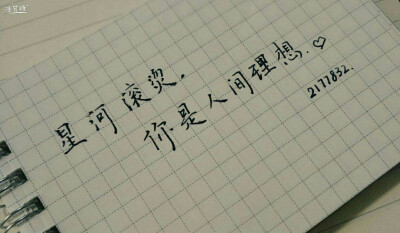 星河滚烫.
你是人间理想.♡
2177832.